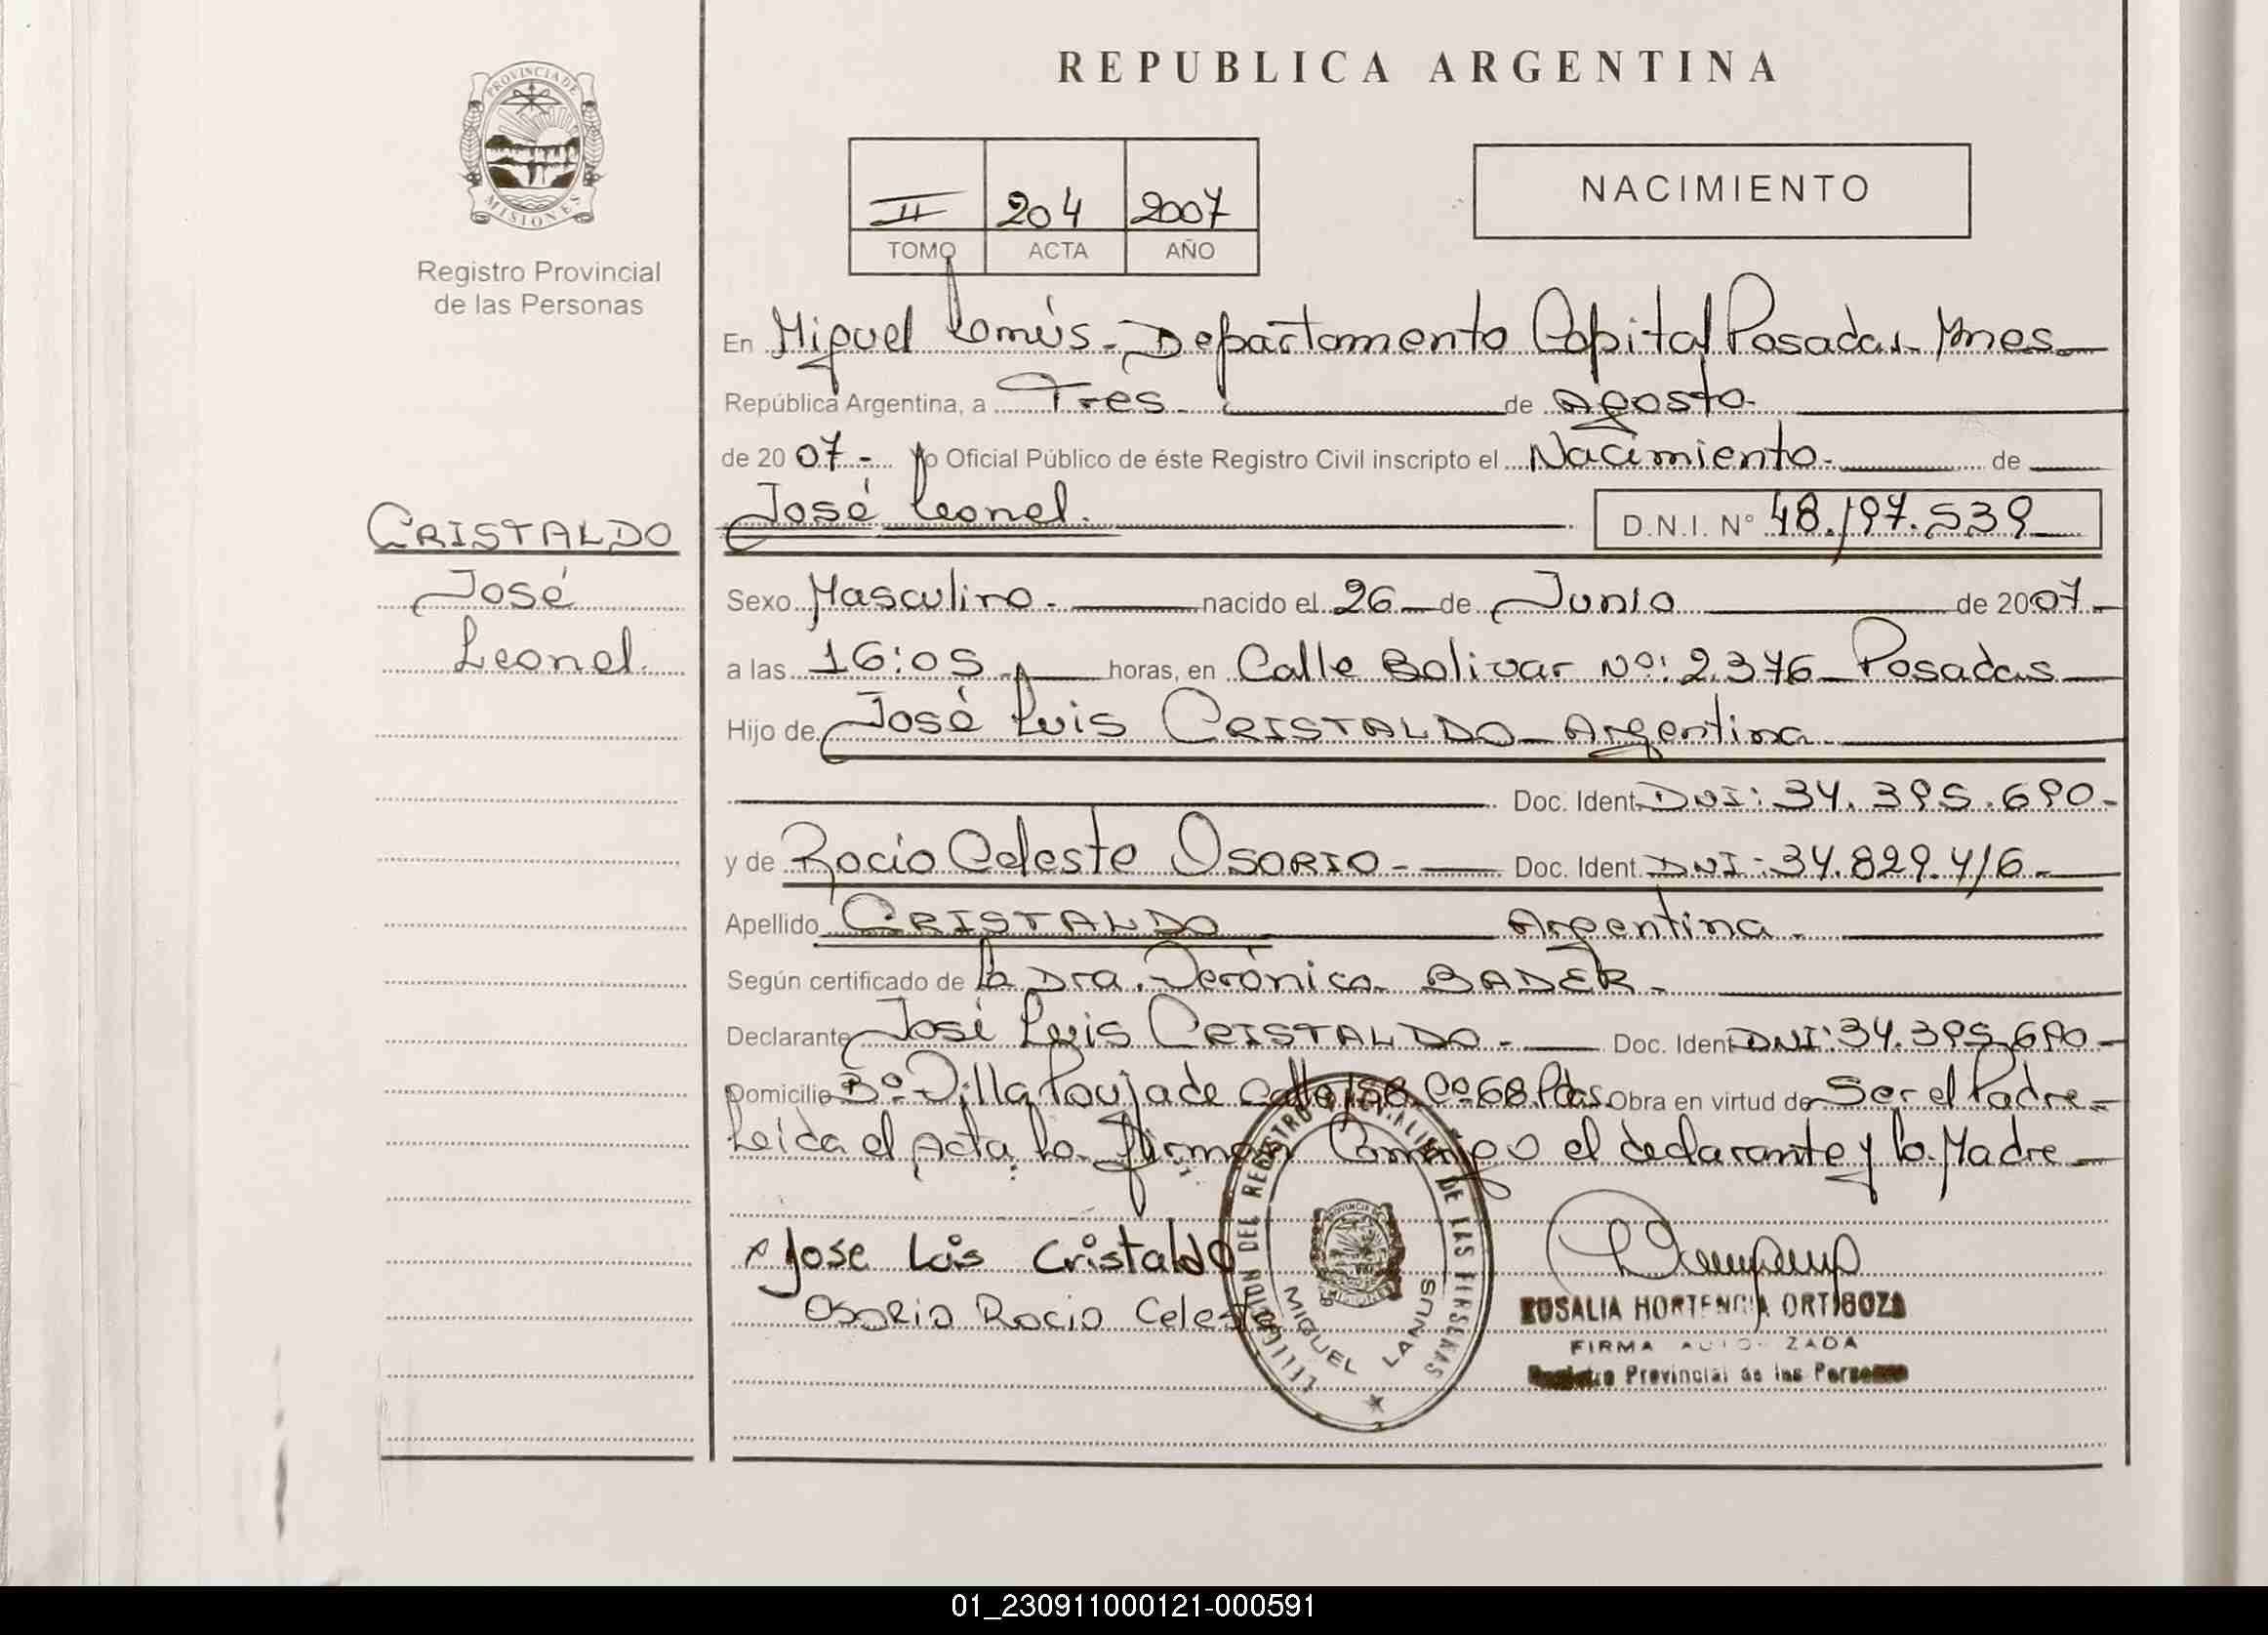 REPUBLICA ARGENTINA
PROVINCIA DE
MISIONES
Registro Provincial
de las Personas
II 204 2007
TOMO ACTA AÑO
NACIMIENTO
En Miguel Lanús - Departamento Capital Posadas Mnes -
República Argentina, a Tres - de Agosto -
de 2007 - Yo Oficial Público de éste Registro Civil inscripto el Nacimiento - de
José Leonel. D.N.I. N° 48.197.539
CRISTALDO
José
Leonel.
Sexo Masculino - nacido el 26 de Junio de 2007 -
a las 16:05 - horas, en Calle Bolivar Nº: 2.376 - Posadas
Hijo de José Luis CRISTALDO - Argentina
Doc. Ident. DNI: 34.395.690 -
y de Rocio Celeste OSORIO - Doc. Ident. DNI: 34.829.416 -
Apellido CRISTALDO Argentina -
Según certificado de la Dra. Verónica BADER -
Declarante José Luis CRISTALDO - Doc. Ident DNI: 34.395.690 -
Domicilio Bº Villa Poujade calle 158 Cº 68. Pdas. Obra en virtud de Ser el Padre -
Leida el Acta la firman Conmigo el declarante y la Madre -
x Jose Luis Cristaldo
Osorio Rocio Celeste
DEL REGISTRO DE LAS PERSONAS
PROVINCIA DE
MISIONES
MIGUEL LANUS
ROSALIA HORTENCIA ORTIGOZA
FIRMA AUTORIZADA
Registro Provincial de las Personas
01_230911000121-000591